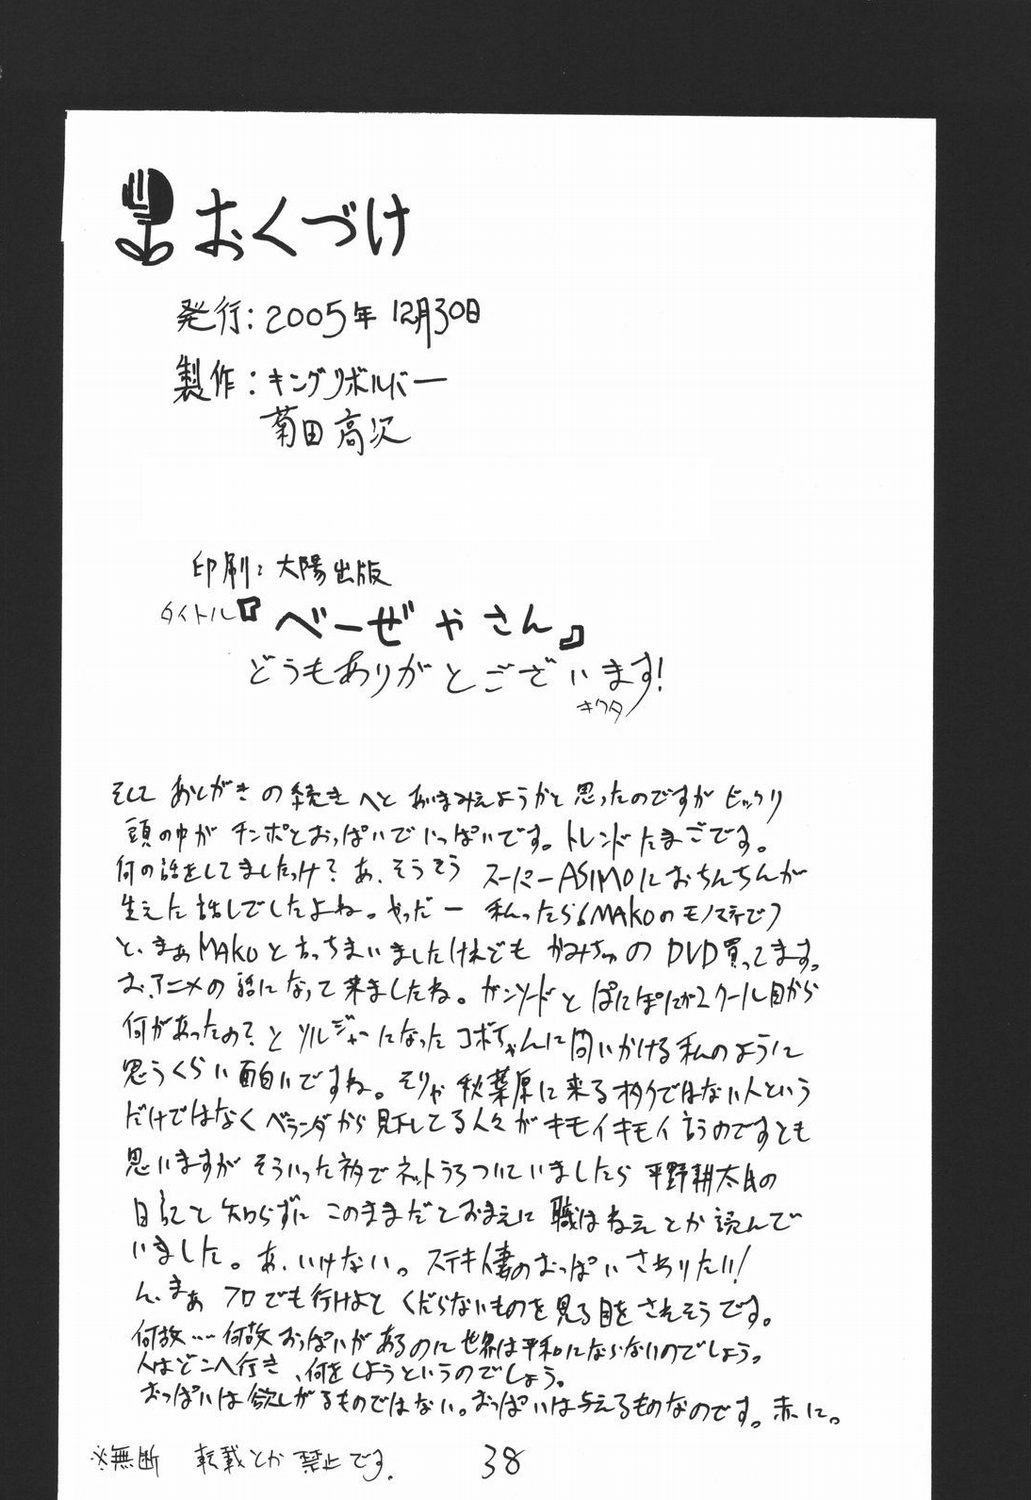 おくづけ
発行：2005年12月30日
製作：キングリボルバー
菊田高次
印刷：大陽出版
タイトル『べーぜやさん』
どうもありがとございます！
キクタ
そして あとがきの続きへと あいまみえようかと思ったのですが ビックリ
頭の中が チンポとおっぱいでいっぱいです。トレンドたまごです。
何の話をしてましたっけ？あ、そうそう スーパーASIMOにおちんちんが
生えた話しでしたよね。やっだー 私ったら MAKOのモノマネで
と、まぁMAKOと言っちまいましたけれども かみちゅのDVD買ってます。
お、アニメの話になって来ましたね。ガンソードとぱにぽにが2クール目から
何があったの？とソルジャーになったコボちゃんに問いかける私のように
思うくらい面白いですね。そりゃ秋葉原に来るオタクではない人という
だけではなくベランダから見下してる人々がキモイキモイ言うのですとも
思いますが そういった訳でネットうろついていましたら 平野耕太氏の
日記と知らずに このままだとおまえに職はねぇとか読んで
いました。あ、いけない。ステキ人妻のおっぱいさわりたい！
ん、まぁ フロでも行けよと くだらないものを見る目をされそうです。
何故…何故おっぱいがあるのに世界は平和にならないのでしょう。
人はどこへ行き、何をしようというのでしょう。
おっぱいは欲しがるものではない。おっぱいは与えるものなのです。赤に。
※無断 転載とか禁止です。
38